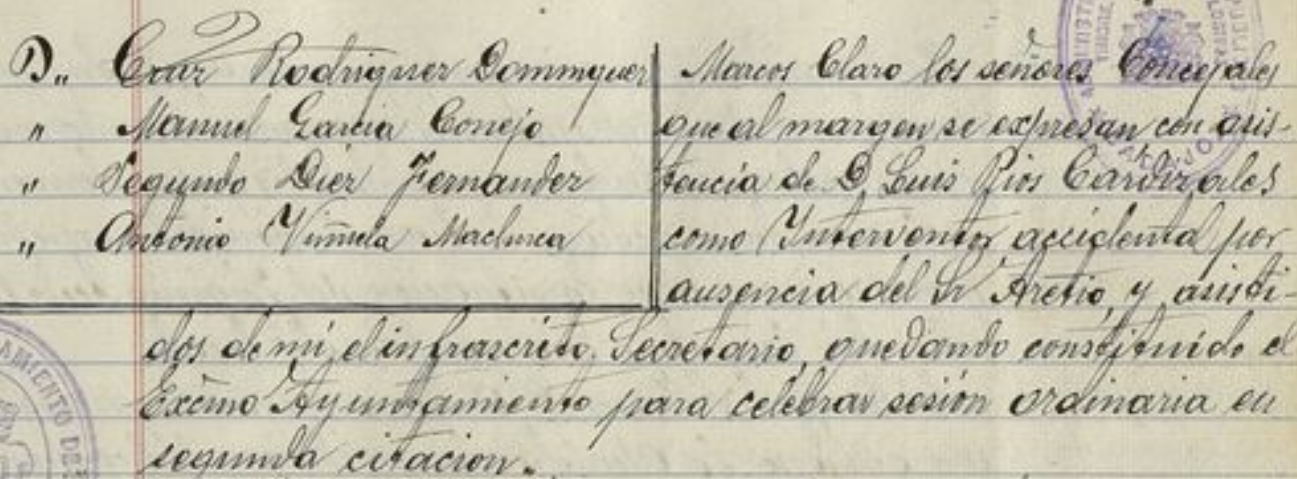 D.. Cruz Rodriguez Dominguez
" Manuel Garcia Conejo
" Segundo Diez Fernandez
" Antonio Viñuela Machuca
Marcos Claro los señores Concejales
que al margen se expresan con asis-
tencia de D. Luis Rios Carvizales
como Interventor accidental por
ausencia del Sr Aretio, y asisti-
dos de mi, el infrascrito, Secretario, quedando constituido el
Excmo Ayuntamiento para celebrar sesión ordinaria en
segunda citacion..